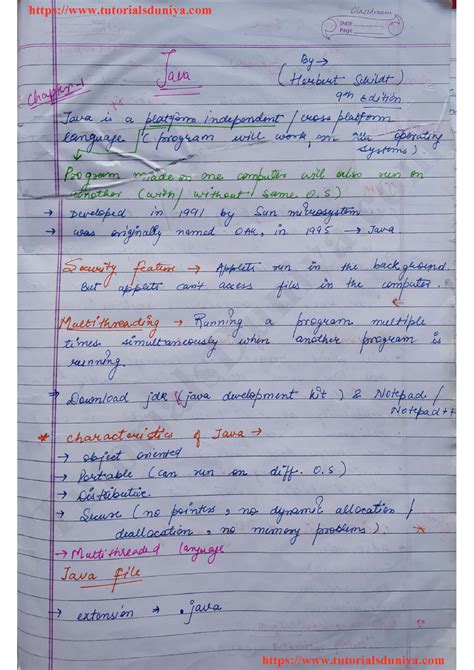 https://www.tutorialsduniya.com
Classroom
Date
Page
Java
By →
(Herbert Schildt)
9th Edition
Chapter-1
Java is a platform independent / cross platform
language (C program will work on operating
systems)
Program made on one computer will also run on
another (with / without same O.S)
→ Developed in 1991 by Sun microsystem
→ was originally named OAK, in 1995 → Java
Security feature → Applets run in the background.
But applets can't access files in the computer.
Multithreading → Running a program multiple
times simultaneously when another program is
running.
→ Download jdk (java development kit) & Notepad /
Notepad++
* Characteristics of Java →
→ object oriented
→ Portable (can run on diff. O.S)
→ Distributive
→ Secure (no pointers, no dynamic allocation /
deallocation, no memory problems).
→ Multithreaded language
Java file
→ extension → .java
https://www.tutorialsduniya.com